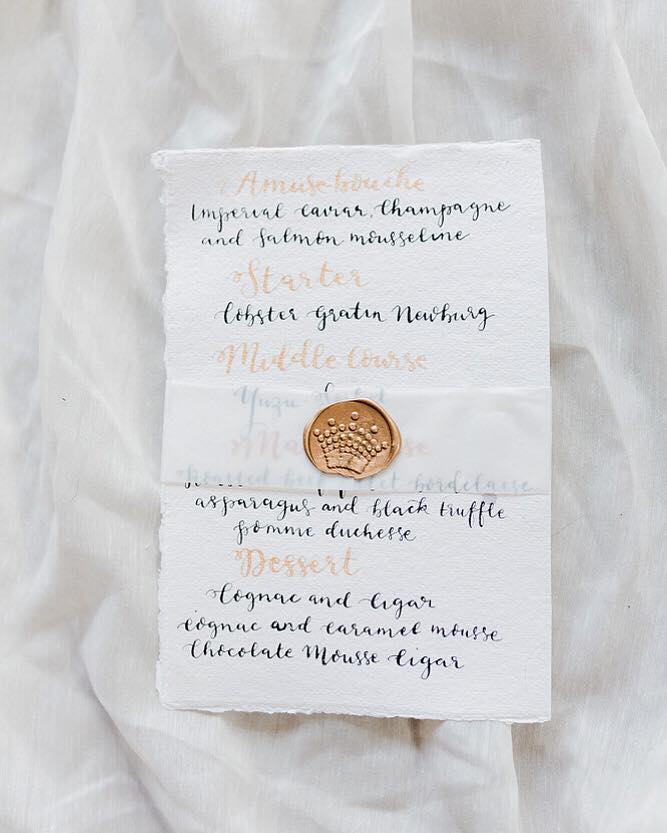 Amuse-bouche
Imperial caviar, Champagne
and Salmon mousseline
Starter
Lobster Gratin Newburg
Middle Course
Yuzu
Roasted beef bordelaise
asparagus and black truffle
pomme duchesse
Dessert
Cognac and Cigar
cognac and caramel mousse
Chocolate Mousse Cigar